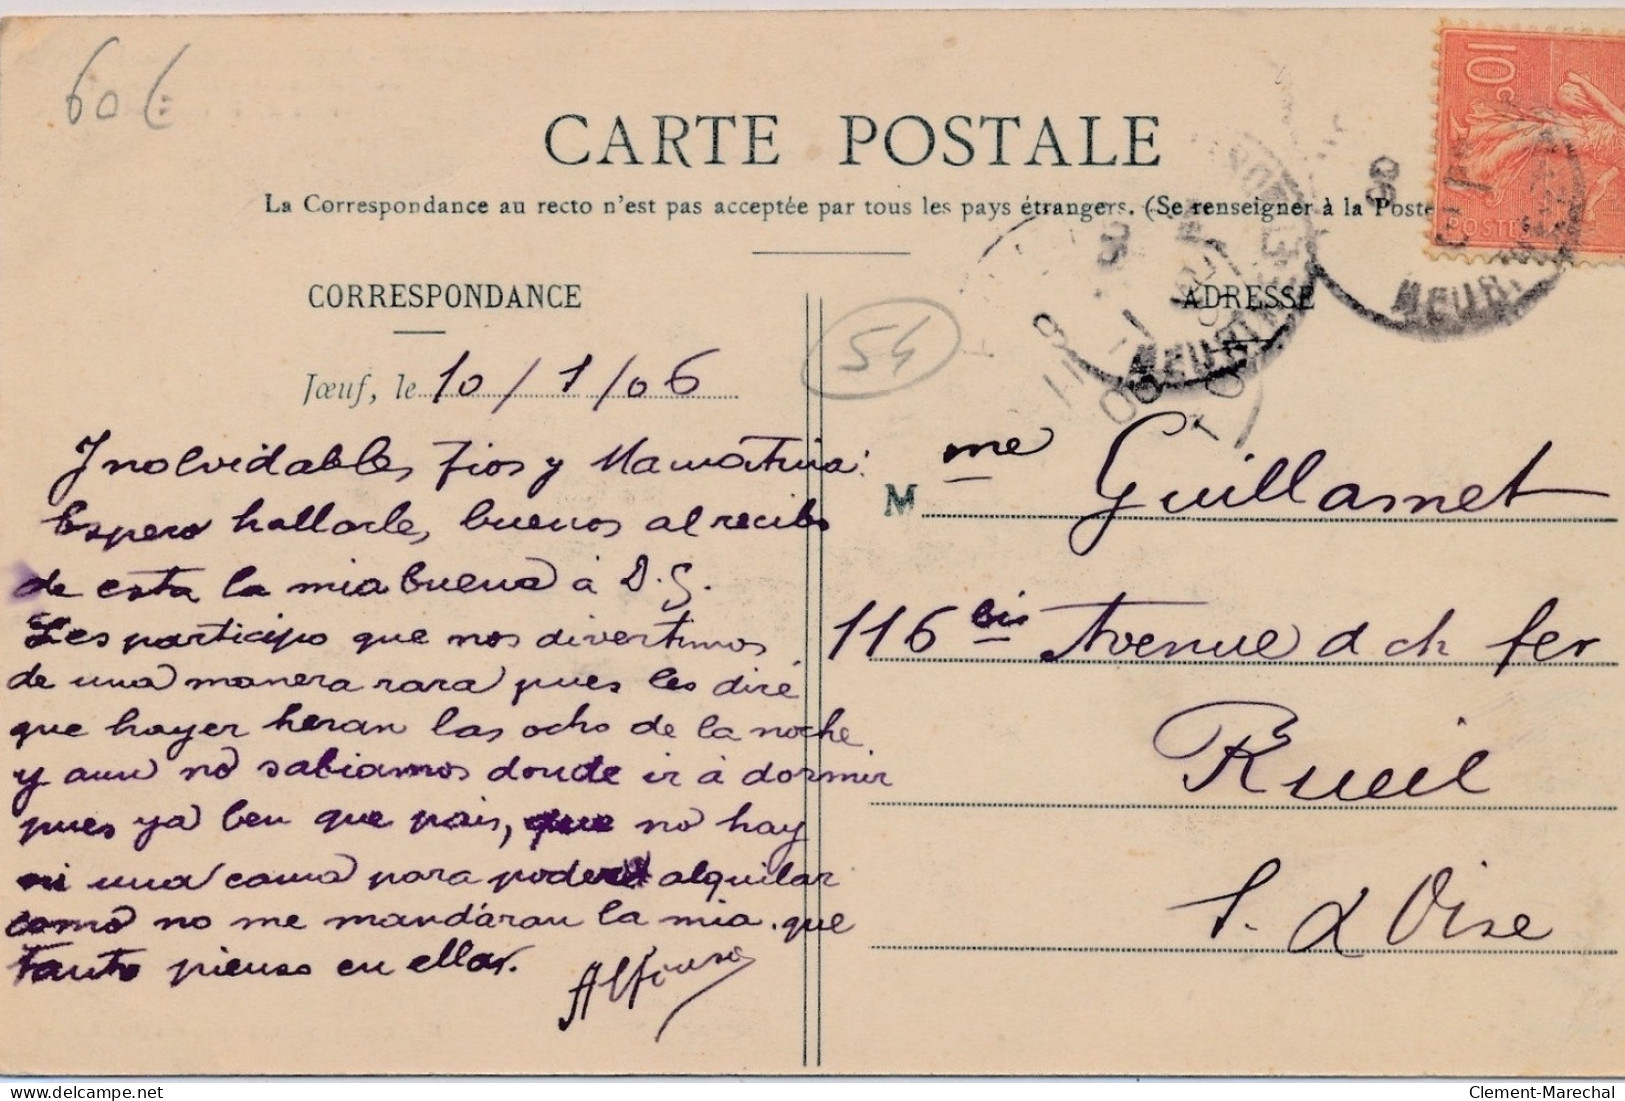 60€
CARTE POSTALE
La Correspondance au recto n'est pas acceptée par tous les pays étrangers. (Se renseigner à la Poste
CORRESPONDANCE
Jœuf, le 10/1/06
Inolvidables Tios y Mamatina:
Espero hallarles buenos al recibo
de esta la mia buena à D. G.
Les participo que nos divertimos
de una manera rara pues les diré
que hayer heran las ocho de la noche
y aun no sabiamos donde ir à dormir
pues ya ben que pais, que no hay
ni una cama para poder alquilar
como no me mandáran la mia. que
tanto pienso en ellas.
Alfonso
54
ADRESSE
Mme Guillamet
116 bis Avenue d ch fer
Rueil
S. & Oise
10c
POSTES
MEURTHE
MEURT
Clement-Marechal